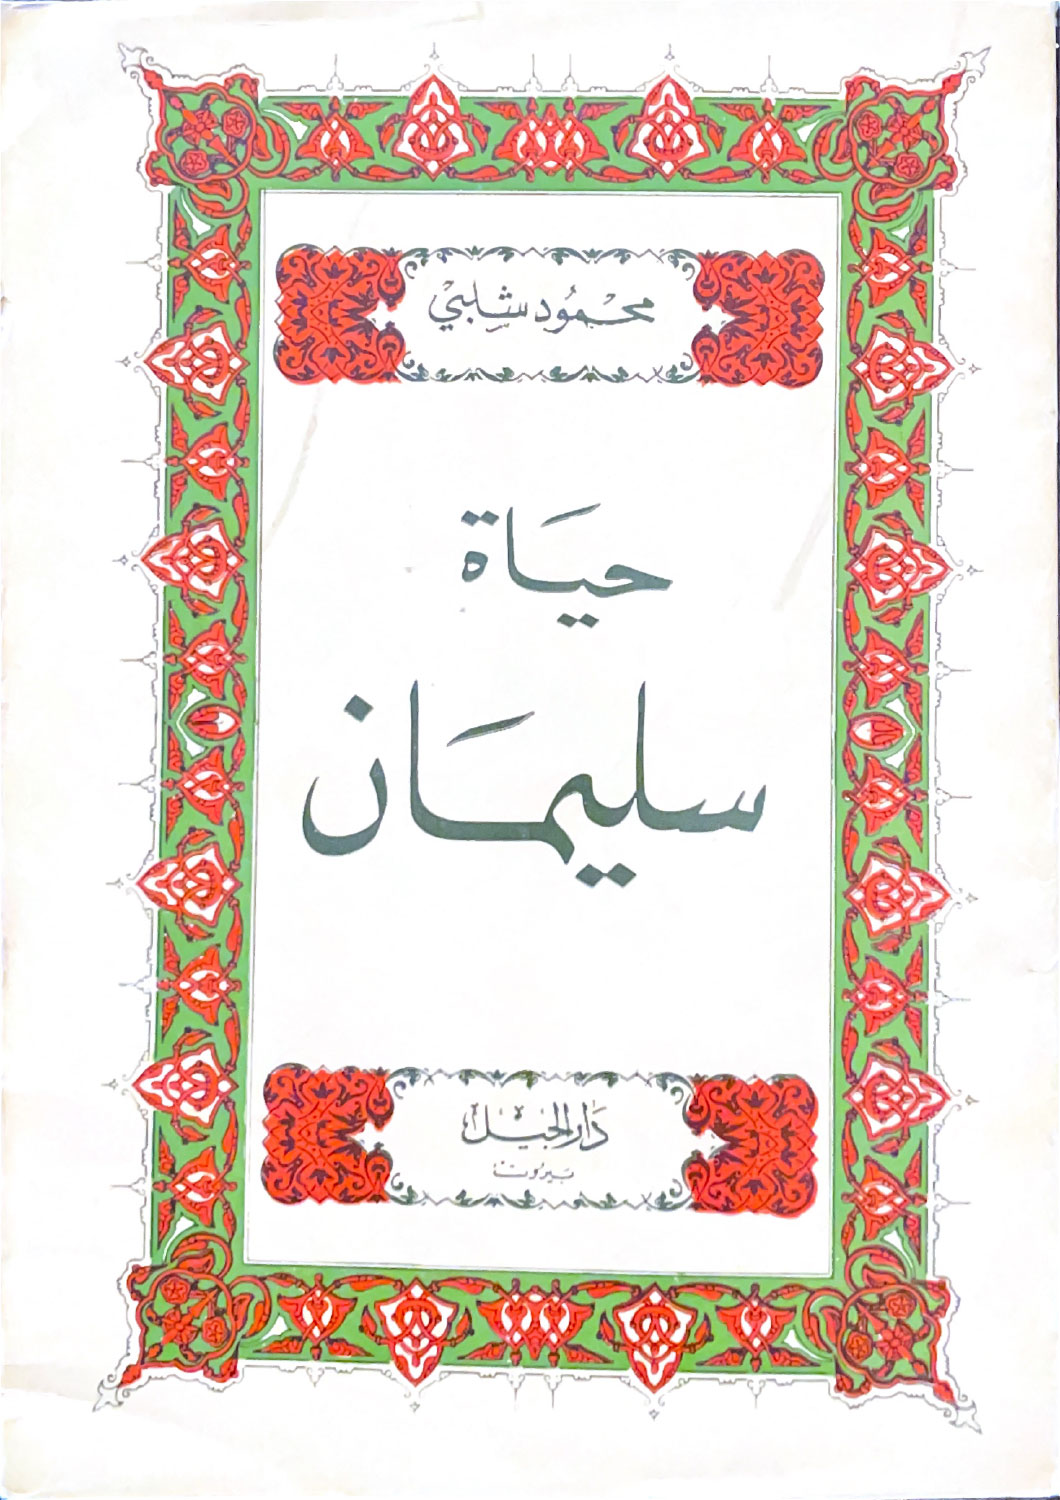 محمُود شلِبيْ
حيَاة
سليمَان
دَار الجيْل
بَيروت